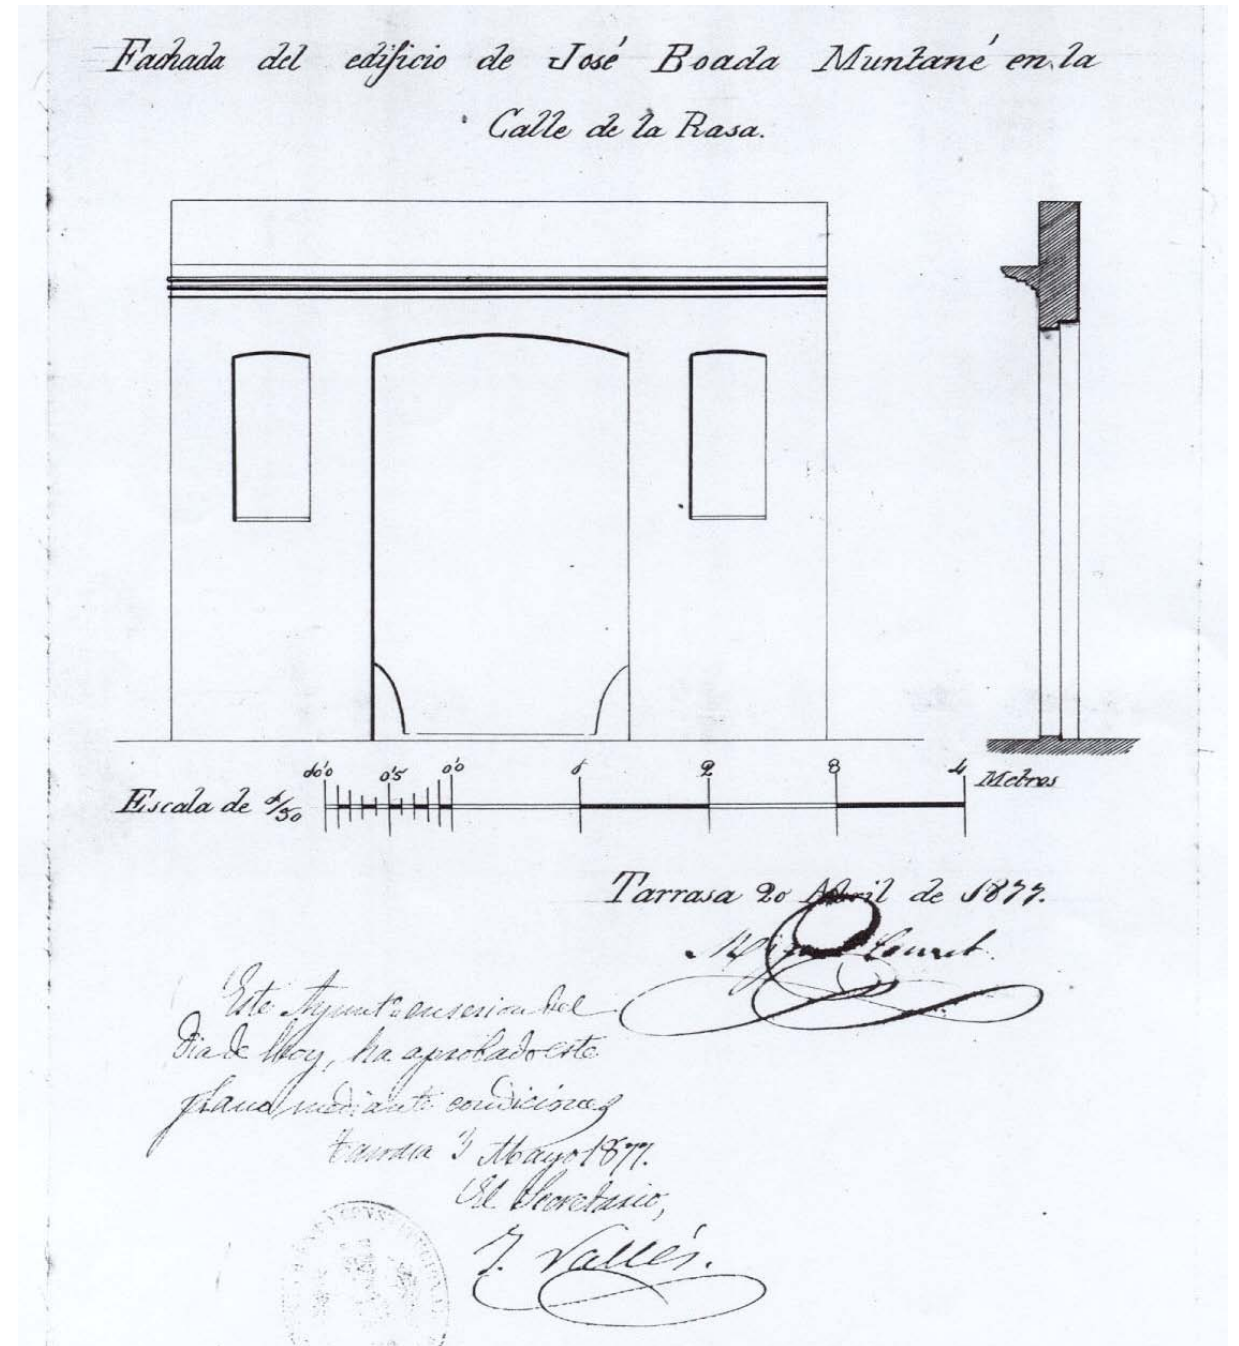 Fachada del edificio de José Boada Muntané en la
Calle de la Rasa.
1'00 0'5 0'0 1 2 3 4 Metros
Escala de 1/50
Tarrasa 20 Abril de 1877.
Este Ayunt° en sesion del
dia de hoy, ha aprobado este
plano, mediante condiciones
Tarrasa 3 Mayo 1877.
El Secretario,
J. Vallés.